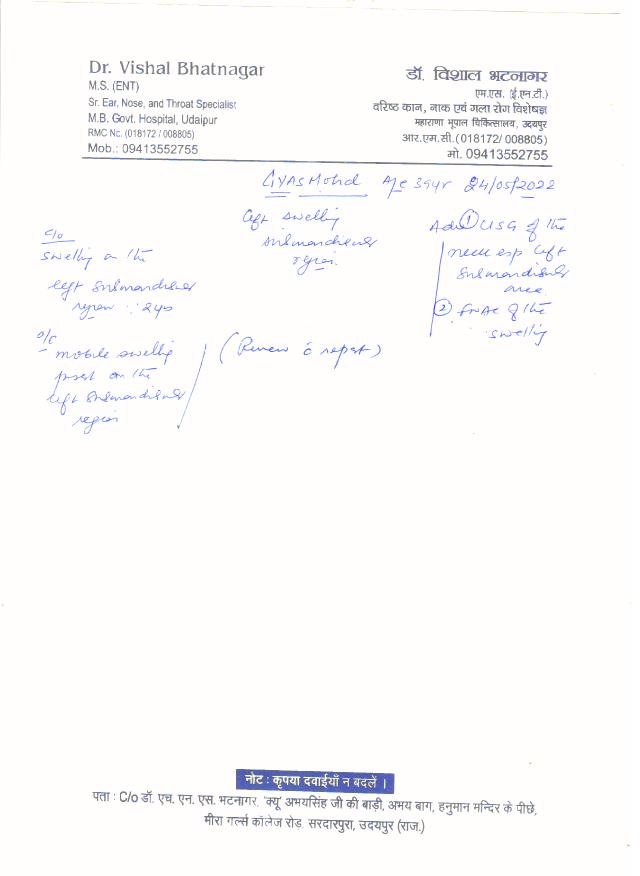 Dr. Vishal Bhatnagar
M.S. (ENT)
Sr. Ear, Nose, and Throat Specialist
M.B. Govt. Hospital, Udaipur
RMC No. (018172 / 008805)
Mob.: 09413552755
डॉ. विशाल भटनागर
एम.एस. (ई.एन.टी.)
वरिष्ठ कान, नाक एवं गला रोग विशेषज्ञ
महाराणा भूपाल चिकित्सालय, उदयपुर
आर.एम.सी. (018172/ 008805)
मो. 09413552755
GYAS Mohd 39yr 24/05/2022
left swelling
submandibular
region.
C/o
swelling on the
left submandibular
region : 2 yrs
O/E
mobile swelling
present on the
left submandibular
region
(Review c̄ report)
Adv ① USG of the
neck esp left
submandibular
area
② FNAC of the
swelling
नोट : कृपया दवाईयाँ न बदलें ।
पता : C/o डॉ. एच. एन. एस. भटनागर, 'क्यू' अभयसिंह जी की बाड़ी, अभय बाग, हनुमान मन्दिर के पीछे,
मीरा गर्ल्स कॉलेज रोड़, सरदारपुरा, उदयपुर (राज.)